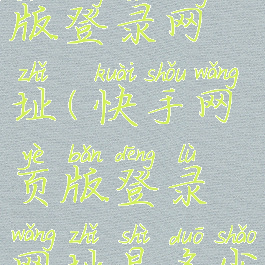 版登录网
zhǐ kuài shǒu wǎng
址(快手网
yè bǎn dēng lù
页版登录
wǎng zhǐ shì duō shǎo
网址是多少